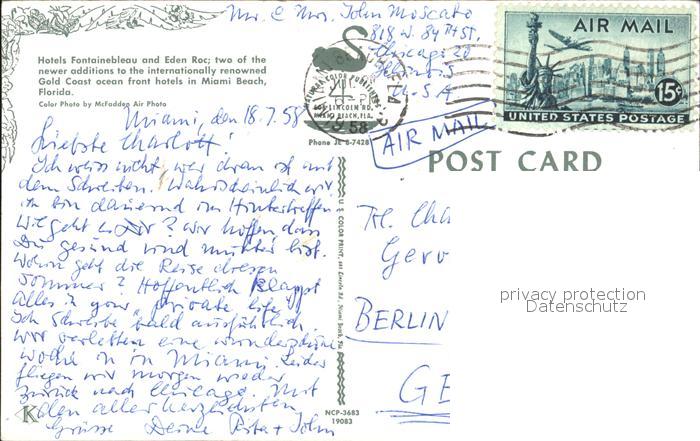 Mr. & Mrs. John Moscato
818 W. 84TH ST.
Chicago 20
Illinois
U.S.A
Hotels Fontainebleau and Eden Roc; two of the
newer additions to the internationally renowned
Gold Coast ocean front hotels in Miami Beach,
Florida.
Color Photo by McFadden Air Photo
Miami, den 18.7.58
Liebste Charlott!
Ich weiss nicht, wer dran ist mit
dem Schreiben. Wahrscheinlich wir
ich bin dauernd im Hintertreffen.
Wie geht es Dir? Wir hoffen dass
Du gesund und munter bist.
Wohin geht die Reise diesen
Sommer? Hoffentlich klappt
alles in your private life.
Ich schreibe bald ausführlich.
Wir verlebten eine wunderschöne
Woche in Miami. Leider
fliegen wir morgen wieder
zurück nach Chicago. Mit
allen aller herzlichsten
Grüsse Deine Rita + John
K
LINCOLN RD.
MIAMI BEACH, FLA.
58
Phone JE 8-7428
AIR MAIL
AIR MAIL
15¢
UNITED STATES POSTAGE
POST CARD
U S COLOR PRINT, Lincoln Rd., Miami Beach, Fla.
NCP-3683
19083
Cha
Gerv
BERLIN
GE
privacy protection
Datenschutz